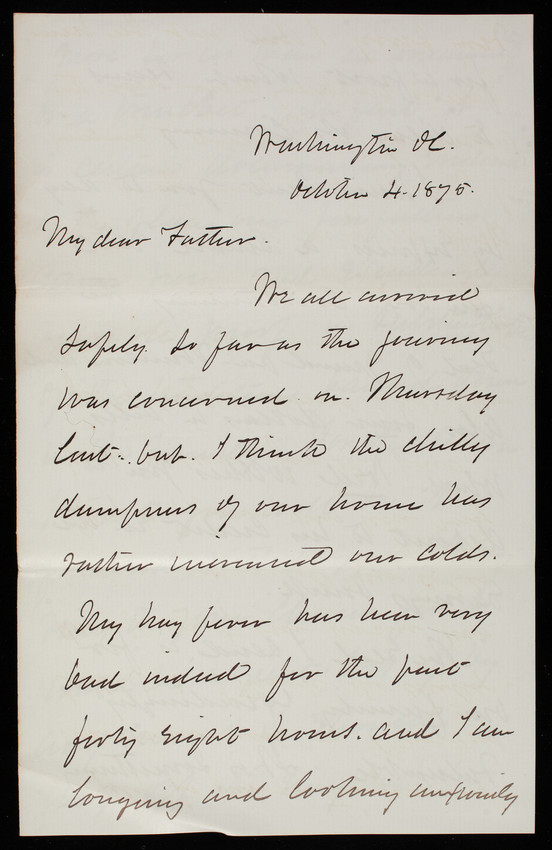 Washington DC.
October 4. 1875.
My dear Father.
We all arrived
safely so far as the journey
was concerned on Thursday
last.. but. I think the chilly
dampness of our home has
rather increased our colds.
My hay fever has been very
bad indeed for the past
forty eight hours. and I am
longing and looking anxiously